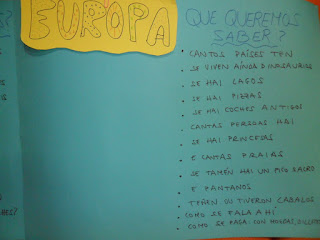 EUROPA
QUE QUEREMOS
SABER?
CANTOS PAÍSES TEN
SE VIVEN AÍNDA DINOSAURIOS
SE HAI LAGOS
SE HAI PIZZAS
SE HAI COCHES ANTIGOS
CANTAS PERSOAS HAI
SE HAI PRINCESAS
E CANTAS PRAIAS
SE TAMÉN HAI UN PIÑO SAGRO
E PANTANOS
TEÑEN OU TIVERON CABALOS
COMO SE FALA AHÍ
COMO SE PAGA: CON MOEDAS,